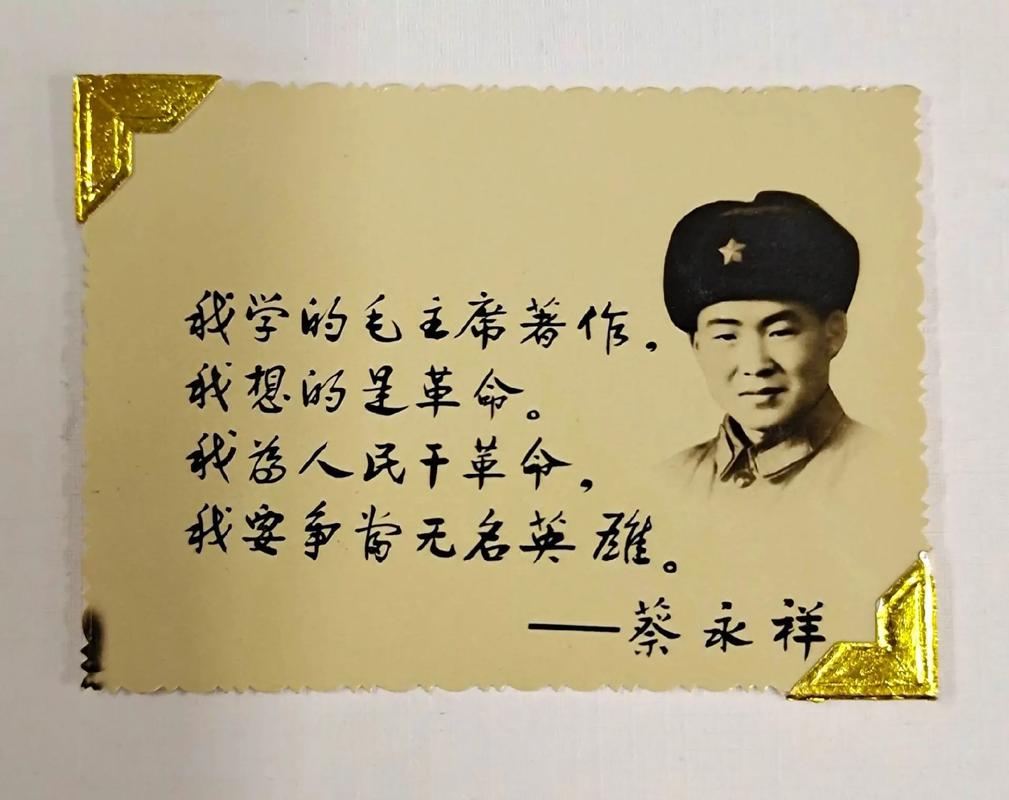 我学的毛主席著作，
我想的是革命。
我為人民干革命，
我要争当无名英雄。
——蔡永祥